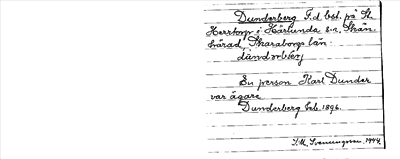 Dunderberg F.d. bst. på St.
Herrtorp i Härlunda s:n, Skån-
härad Skaraborgs län.
dåndərbærj
En person Karl Dunder
var ägare.
Dunderberg beb. 1896.
I.M. Svenungsson. 1944.